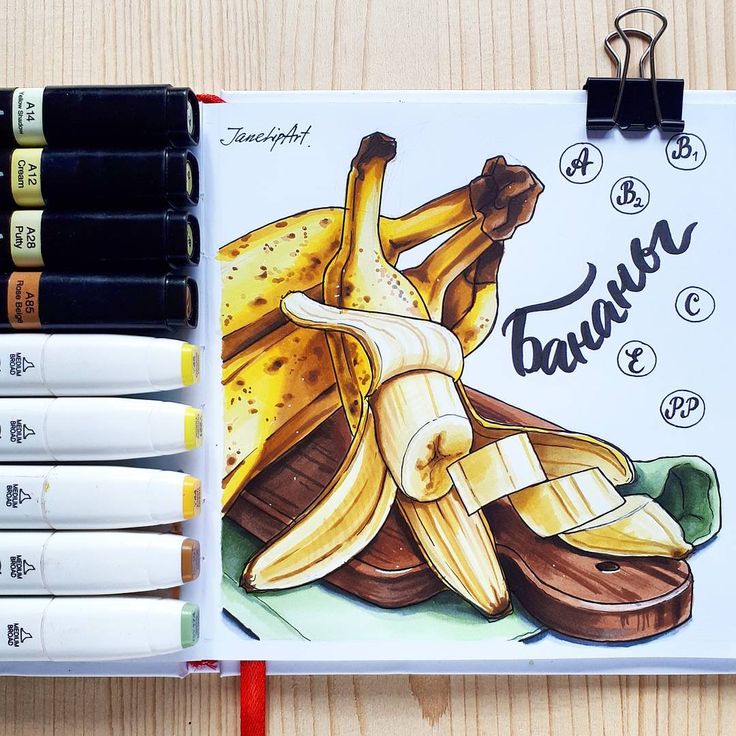 A14
Yellow Shadow
A12
Cream
A28
Putty
A85
Rose Beige
MEDIUM
BROAD
MEDIUM
BROAD
MEDIUM
BROAD
MEDIUM
BROAD
MEDIUM
BROAD
JaneLipArt.
A
B1
B2
Бананы
C
E
PP